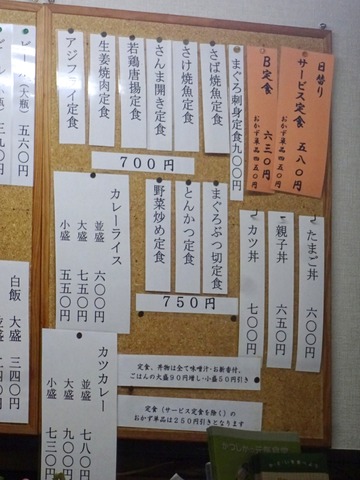 日替り
サービス定食 五八〇円
おかず単品四五〇円
B定食 六三〇円
おかず単品四五〇円
まぐろ刺身定食九〇〇円
さば焼魚定食
さけ焼魚定食
さんま開き定食
若鶏唐揚定食
生姜焼肉定食
アジフライ定食
700円
まぐろぶつ切定食
とんかつ定食
野菜炒め定食
750円
カレーライス
並盛 六〇〇円
大盛 七五〇円
小盛 五五〇円
たまご丼 六〇〇円
親子丼 六五〇円
カツ丼 七〇〇円
定食、丼物は全て味噌汁・お新香付。
ごはんの大盛90円増し・小盛50円引き
カツカレー
並盛 七八〇円
大盛 九〇〇円
小盛 七三〇円
定食（サービス定食を除く）の
おかず単品は250円引きとなります
ビール（大瓶） 五六〇円
白飯 大盛 二四〇円